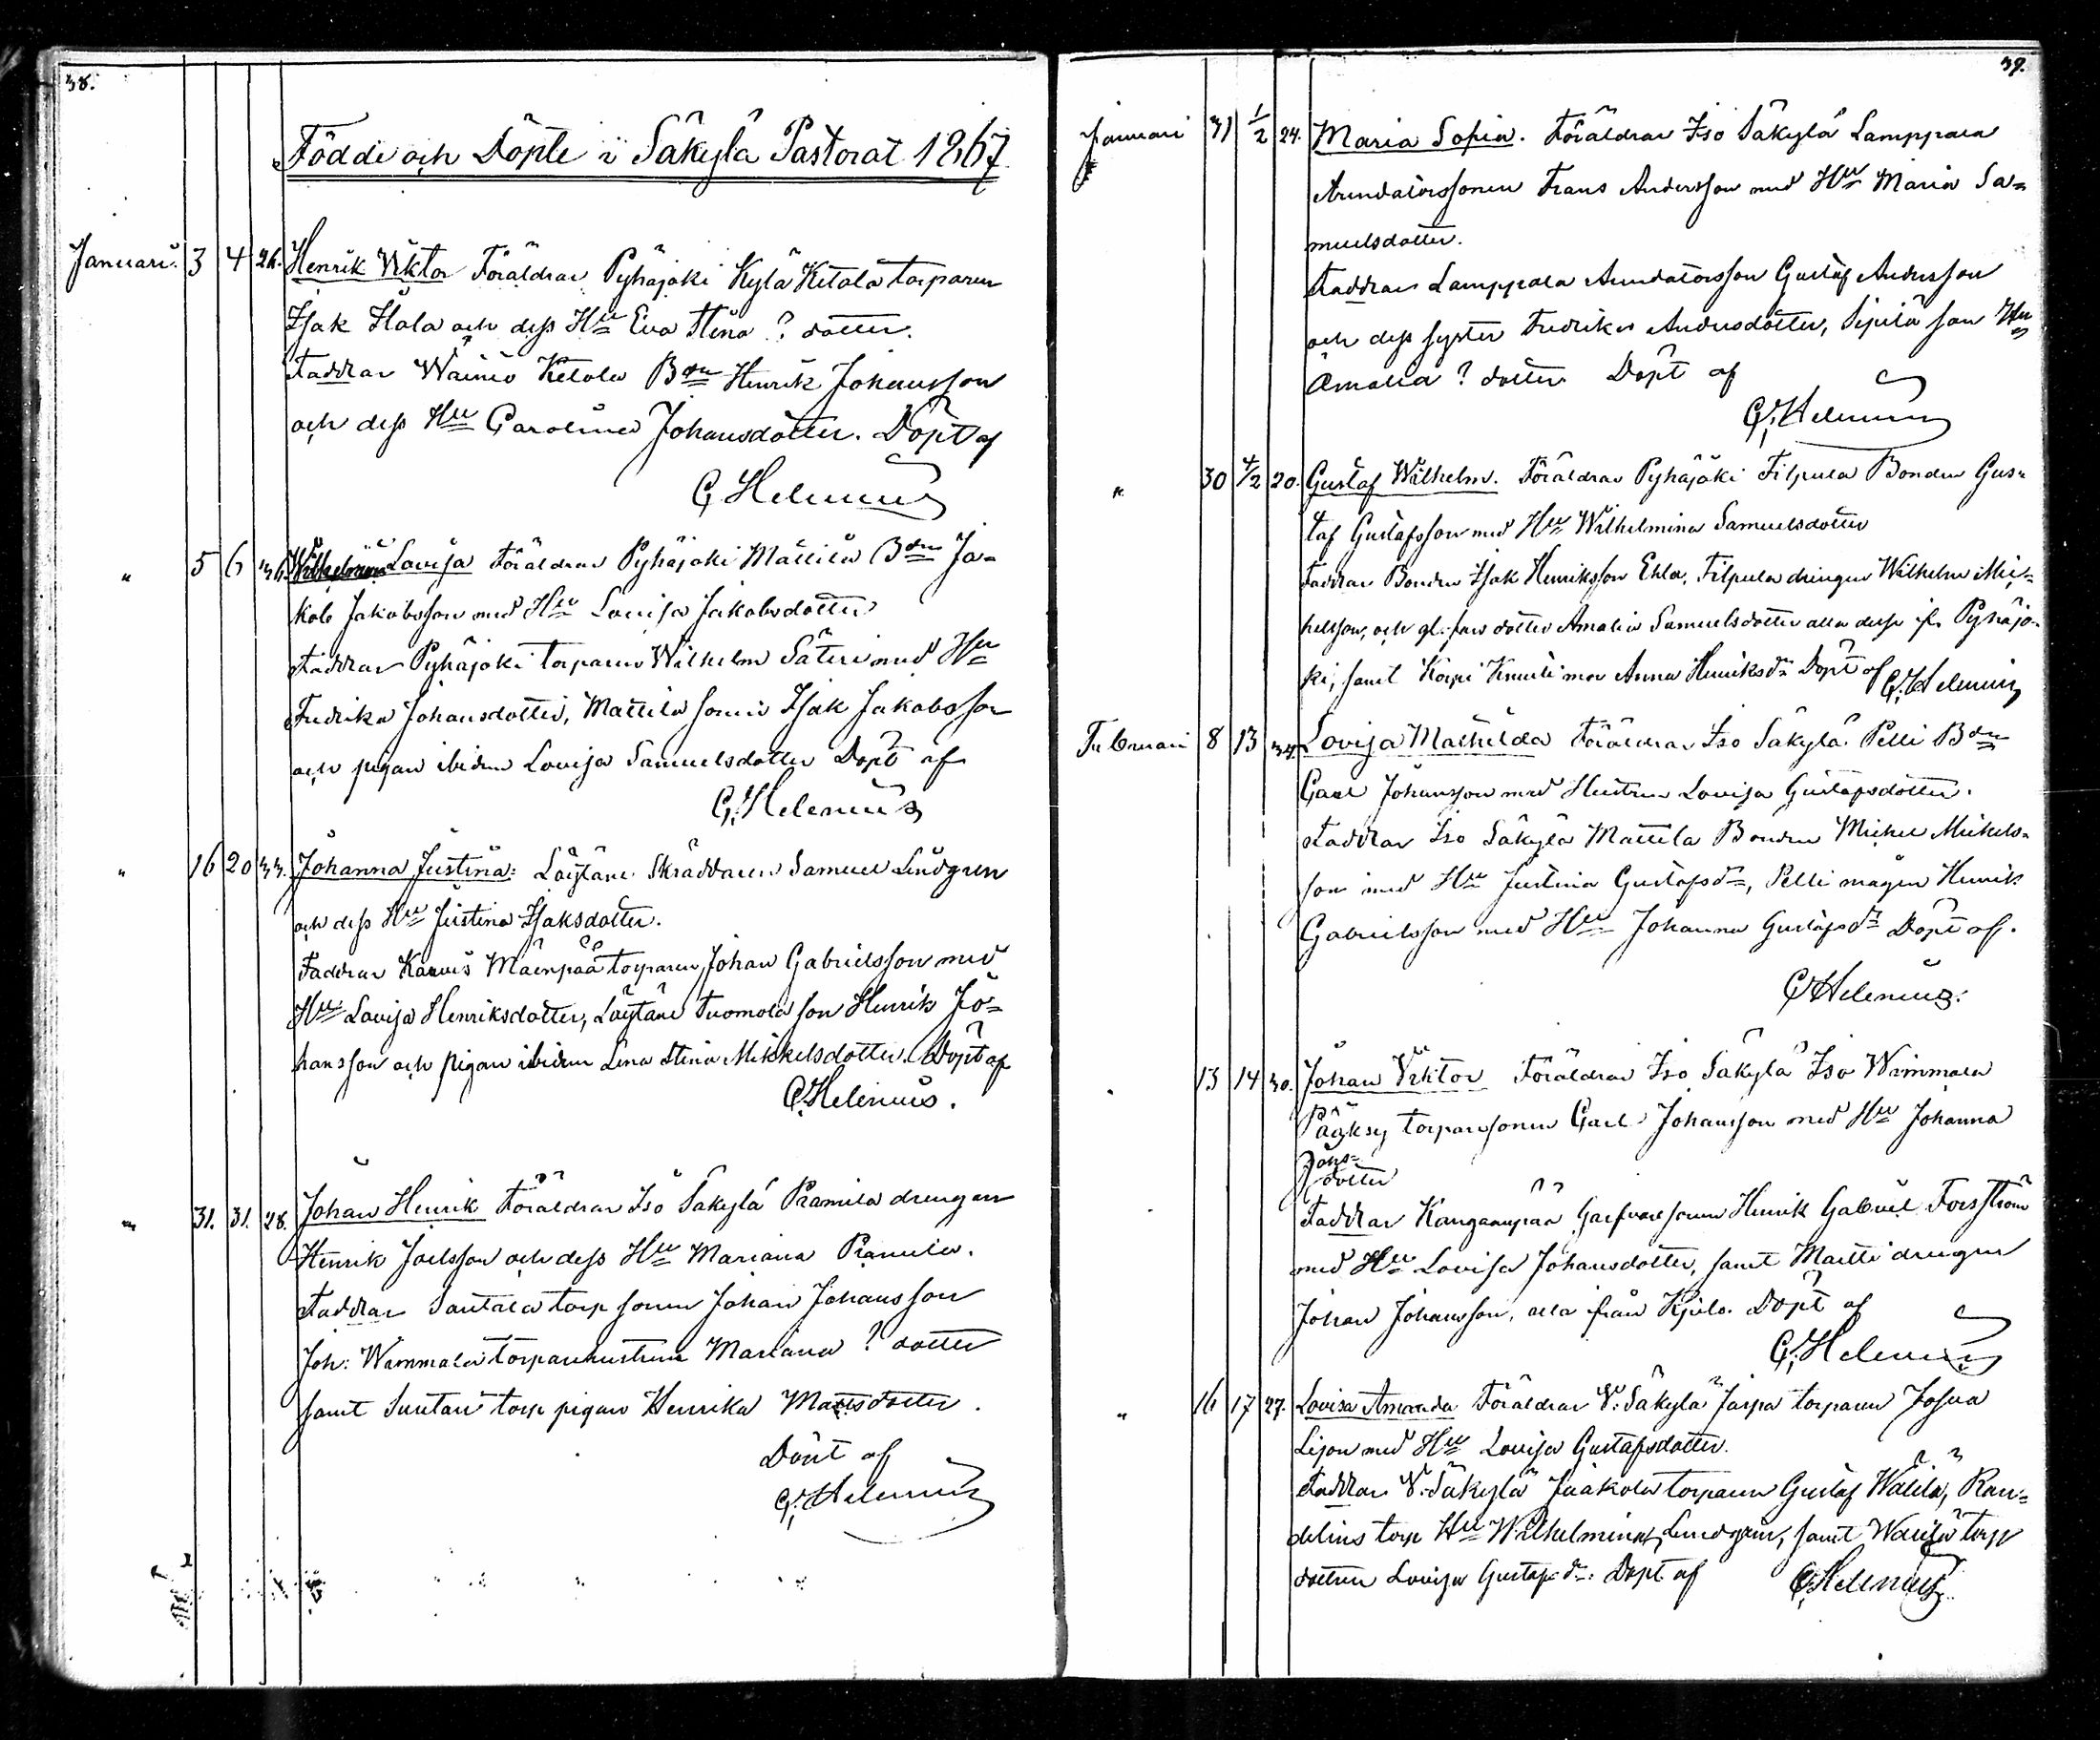 38.
Födde och Döpte i Säkylä Pastorat 1867
Januari. 3 4 26. Henrik Viktor Föräldrar Pyhäjoki Kylä Ketola torparen
Isak Hola och dess Hu Eva Stina ? dotter.
Faddrar Wäinio Ketola Bdn Henrik Johansson
och dess Hu Carolina Johansdotter. Döpt af
G Helenius
" 5 6 36 Lovisa Föräldrar Pyhäjoki Mattila Bdn Ja=
kob Jakobsson med Hu Lovisa Jakobsdotter
Faddrar Pyhäjoki torparen Wilhelm Säteri med Hu
Fredrika Johansdotter, Mattila sonen Isak Jakobsson
och pigan ibidem Lovisa Samuelsdotter Döpt af
G. Helenius
" 16 20 33. Johanna Justina: Löytäne Skräddaren Samuel Lindgren
och dess Hu Justina Isaksdotter.
Faddrar Mäenpää torparen Johan Gabrielsson med
Hu Lovisa Henriksdotter, Löytäne Tuomola son Henrik Jo=
hansson och pigan ibidem Lena Stina Mikkelsdotter. Döpt af
G. Helenius.
" 31. 31. 28. Johan Henrik Föräldrar Iso Säkylä Pramila drengen
Henrik Joelsson och dess Hu Mariana Pramila.
Faddrar Santala torp sonen Johan Johansson
Joh: Wammala torparehustrun Mariana ? dotter
samt torp pigan Henrika Matsdotter.
Döpt af
G. Helenius
39.
Januari 31 1/2 24. Maria Sofia. Föräldrar Iso Säkylä Lamppala
Arendatorssonen Frans Andersson med Hu Maria Sa=
muelsdotter.
Faddrar Lamppala Arendatorsson Gustaf Andersson
och dess syster Fredrika Andersdotter, Sipilä son Hu
Amalia ? dotter Döpt af
G. Helenius
" 30 4/2 20. Gustaf Wilhelm. Föräldrar Pyhäjoki Filpula Bonden Gus=
taf Gustafsson med Hu Wilhelmina Samuelsdotter
Faddrar Bonden Isak Henriksson Ehla, Filpula drengen Wilhelm Mic=
helsson, och gl. fars dotter Amalia Samuelsdotter alla desse fr. Pyhäjo=
ki, samt Korpi Knuuti mor Anna Henriksdr Döpt af G. Helenius
Februari 8 13 34. Lovisa Mathilda Föräldrar Iso Säkylä Pelli Bdn
Carl Johansson med Hustru Lovisa Gustafsdotter.
Faddrar Iso Säkylä Mattila Bonden Michel Mickels=
son med Hu Justina Gustafsdr, Pelli mågen Henrik
Gabrielsson med Hu Johanna Gustafsdr Döpt af.
G Helenius.
" 13 14 30. Johan Viktor Föräldrar Iso Säkylä Iso Wammala
Pääksy torparesonen Carl Johansson med Hu Johanna
Johs=
dotter
Faddrar Kangaanpää Garfvare sonen Henrik Gabriel Forsström
med Hu Lovisa Johansdotter, samt Martti drengen
Johan Johansson, alla från Kjulo. Döpt af
G. Helenius
" 16 17 27. Lovisa Amanda Föräldrar V. Säkylä Jaspa torparen Josua
med Hu Lovisa Gustafsdotter.
Faddrar V. Säkylä Jaakola torparen Gustaf Wälilä, Ran=
delins torp Hu Wilhelmina Lindgren, samt Wälilä torp
dottren Lovisa Gustafsdr. Döpt af G. Helenius